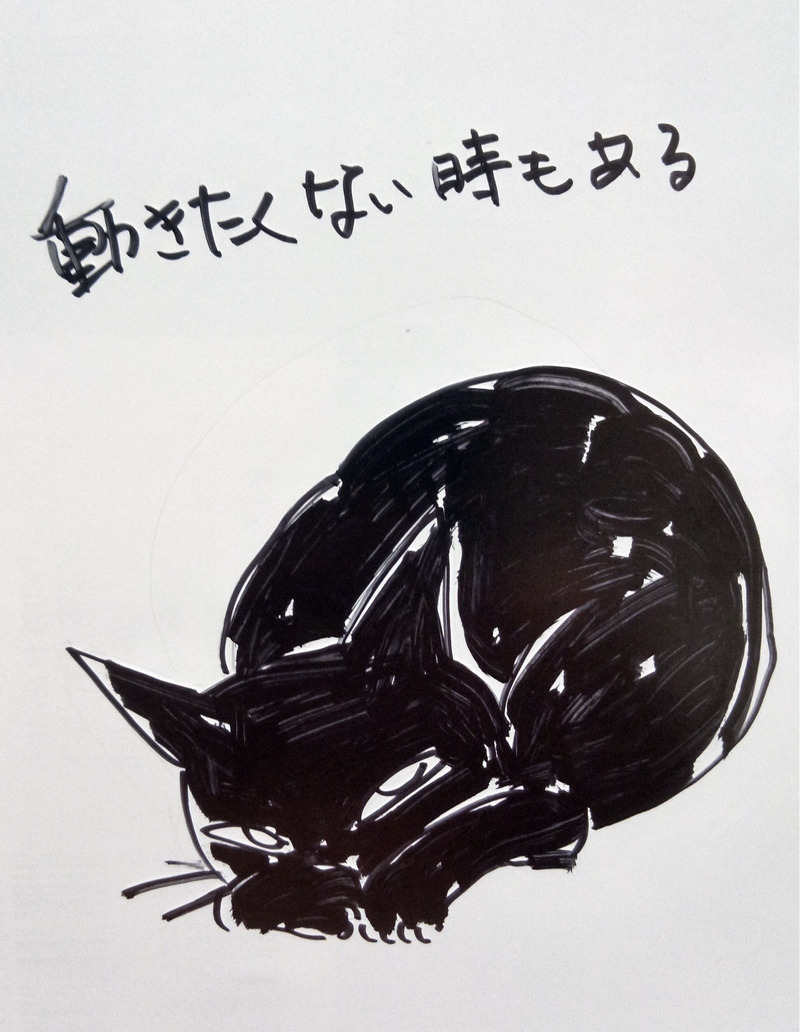 動きたくない時もある